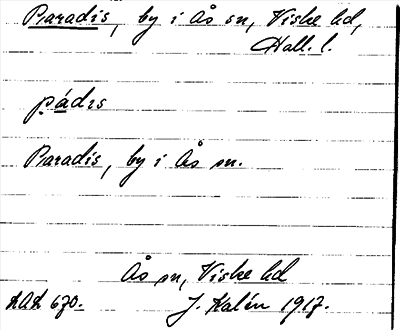 Paradis, by i Ås sn, Viske hd,
Hall. l.
Paradis, by i Ås sn.
Ås sn, Viske hd
LAL 670. J. Kalén 1917.